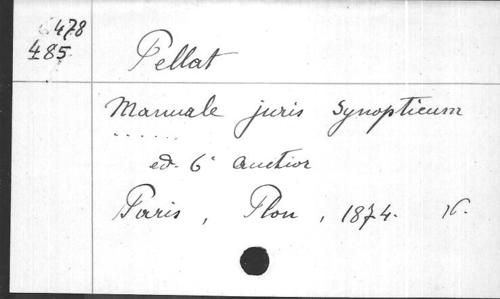 6478
485.
Pellat
Manuale juris synopticum
......
ed. 6ª auctior
Paris, Plon, 1874. 16.